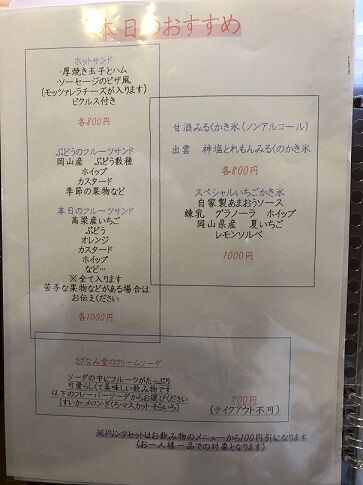 本日のおすすめ
ホットサンド
・厚焼き玉子とハム
・ソーセージのピザ風
(モッツァレラチーズが入ります)
ピクルス付き
各800円
ぶどうのフルーツサンド
岡山産　ぶどう数種
ホイップ
カスタード
季節の果物など
本日のフルーツサンド
高梁産いちご
ぶどう
オレンジ
カスタード
ホイップ
など…
※全て入ります
苦手な果物などがある場合は
お伝えください
各1000円
甘酒みるくかき氷(ノンアルコール)
出雲　神塩とれもんみるくのかき氷
各800円
スペシャルいちごかき氷
自家製あまおうソース
練乳　グラノーラ　ホイップ
岡山県産　夏いちご
レモンソルベ
1000円
さざなみ堂のクリームソーダ
ソーダの中にフルーツがたっぷり
可愛らしくて美味しい飲み物です
以下のフレーバーソーダからお選びください
(すいか・メロン・ざくろ・マスカット・そらいろ)
700円
(テイクアウト不可)
※ドリンクセットはお飲み物のメニューから100円引になります
(お一人様一品での対象となります)